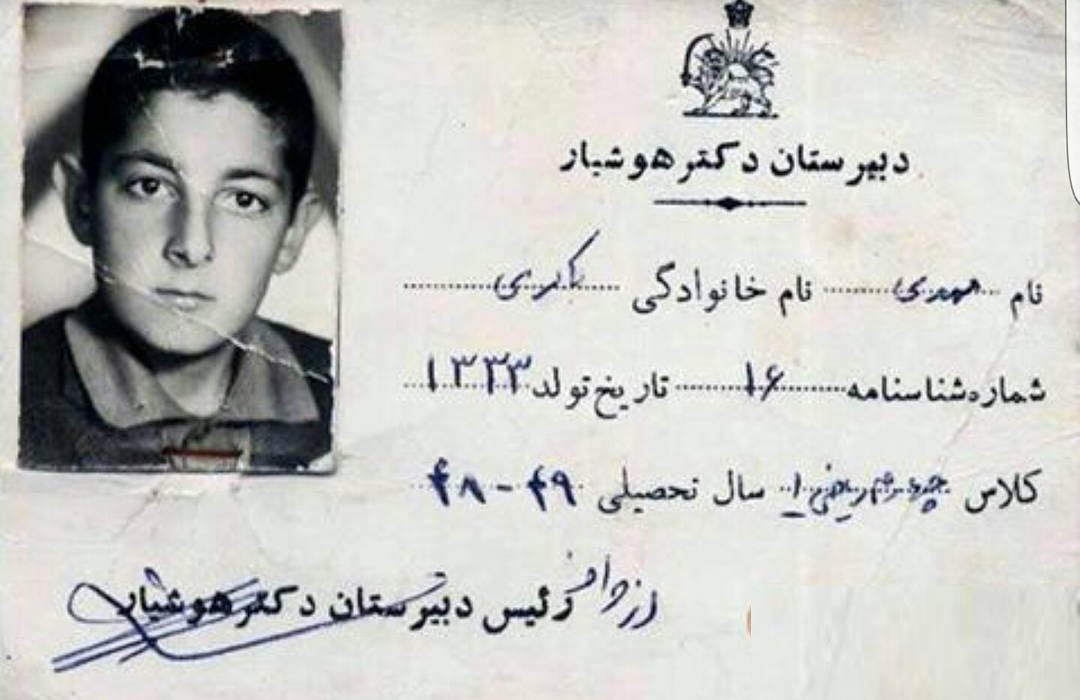 دبیرستان دکتر هوشیار
نام مهدی نام خانوادگی باکری
شماره شناسنامه ۱۶ تاریخ تولد ۱۳۳۳
کلاس چهارم ریاضی ۱ سال تحصیلی ۴۹ - ۴۸
رئیس دبیرستان دکتر هوشیار